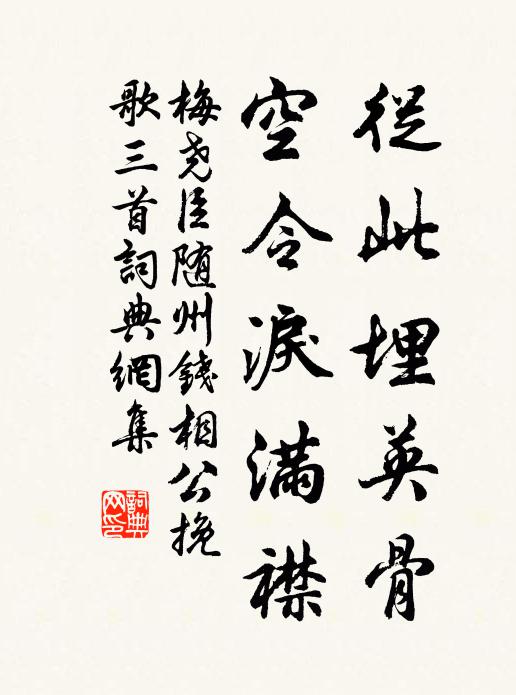 從此埋英骨
空令淚滿襟
梅尧臣随州錢相公挽
歌三首詞典網集
詞典
网印